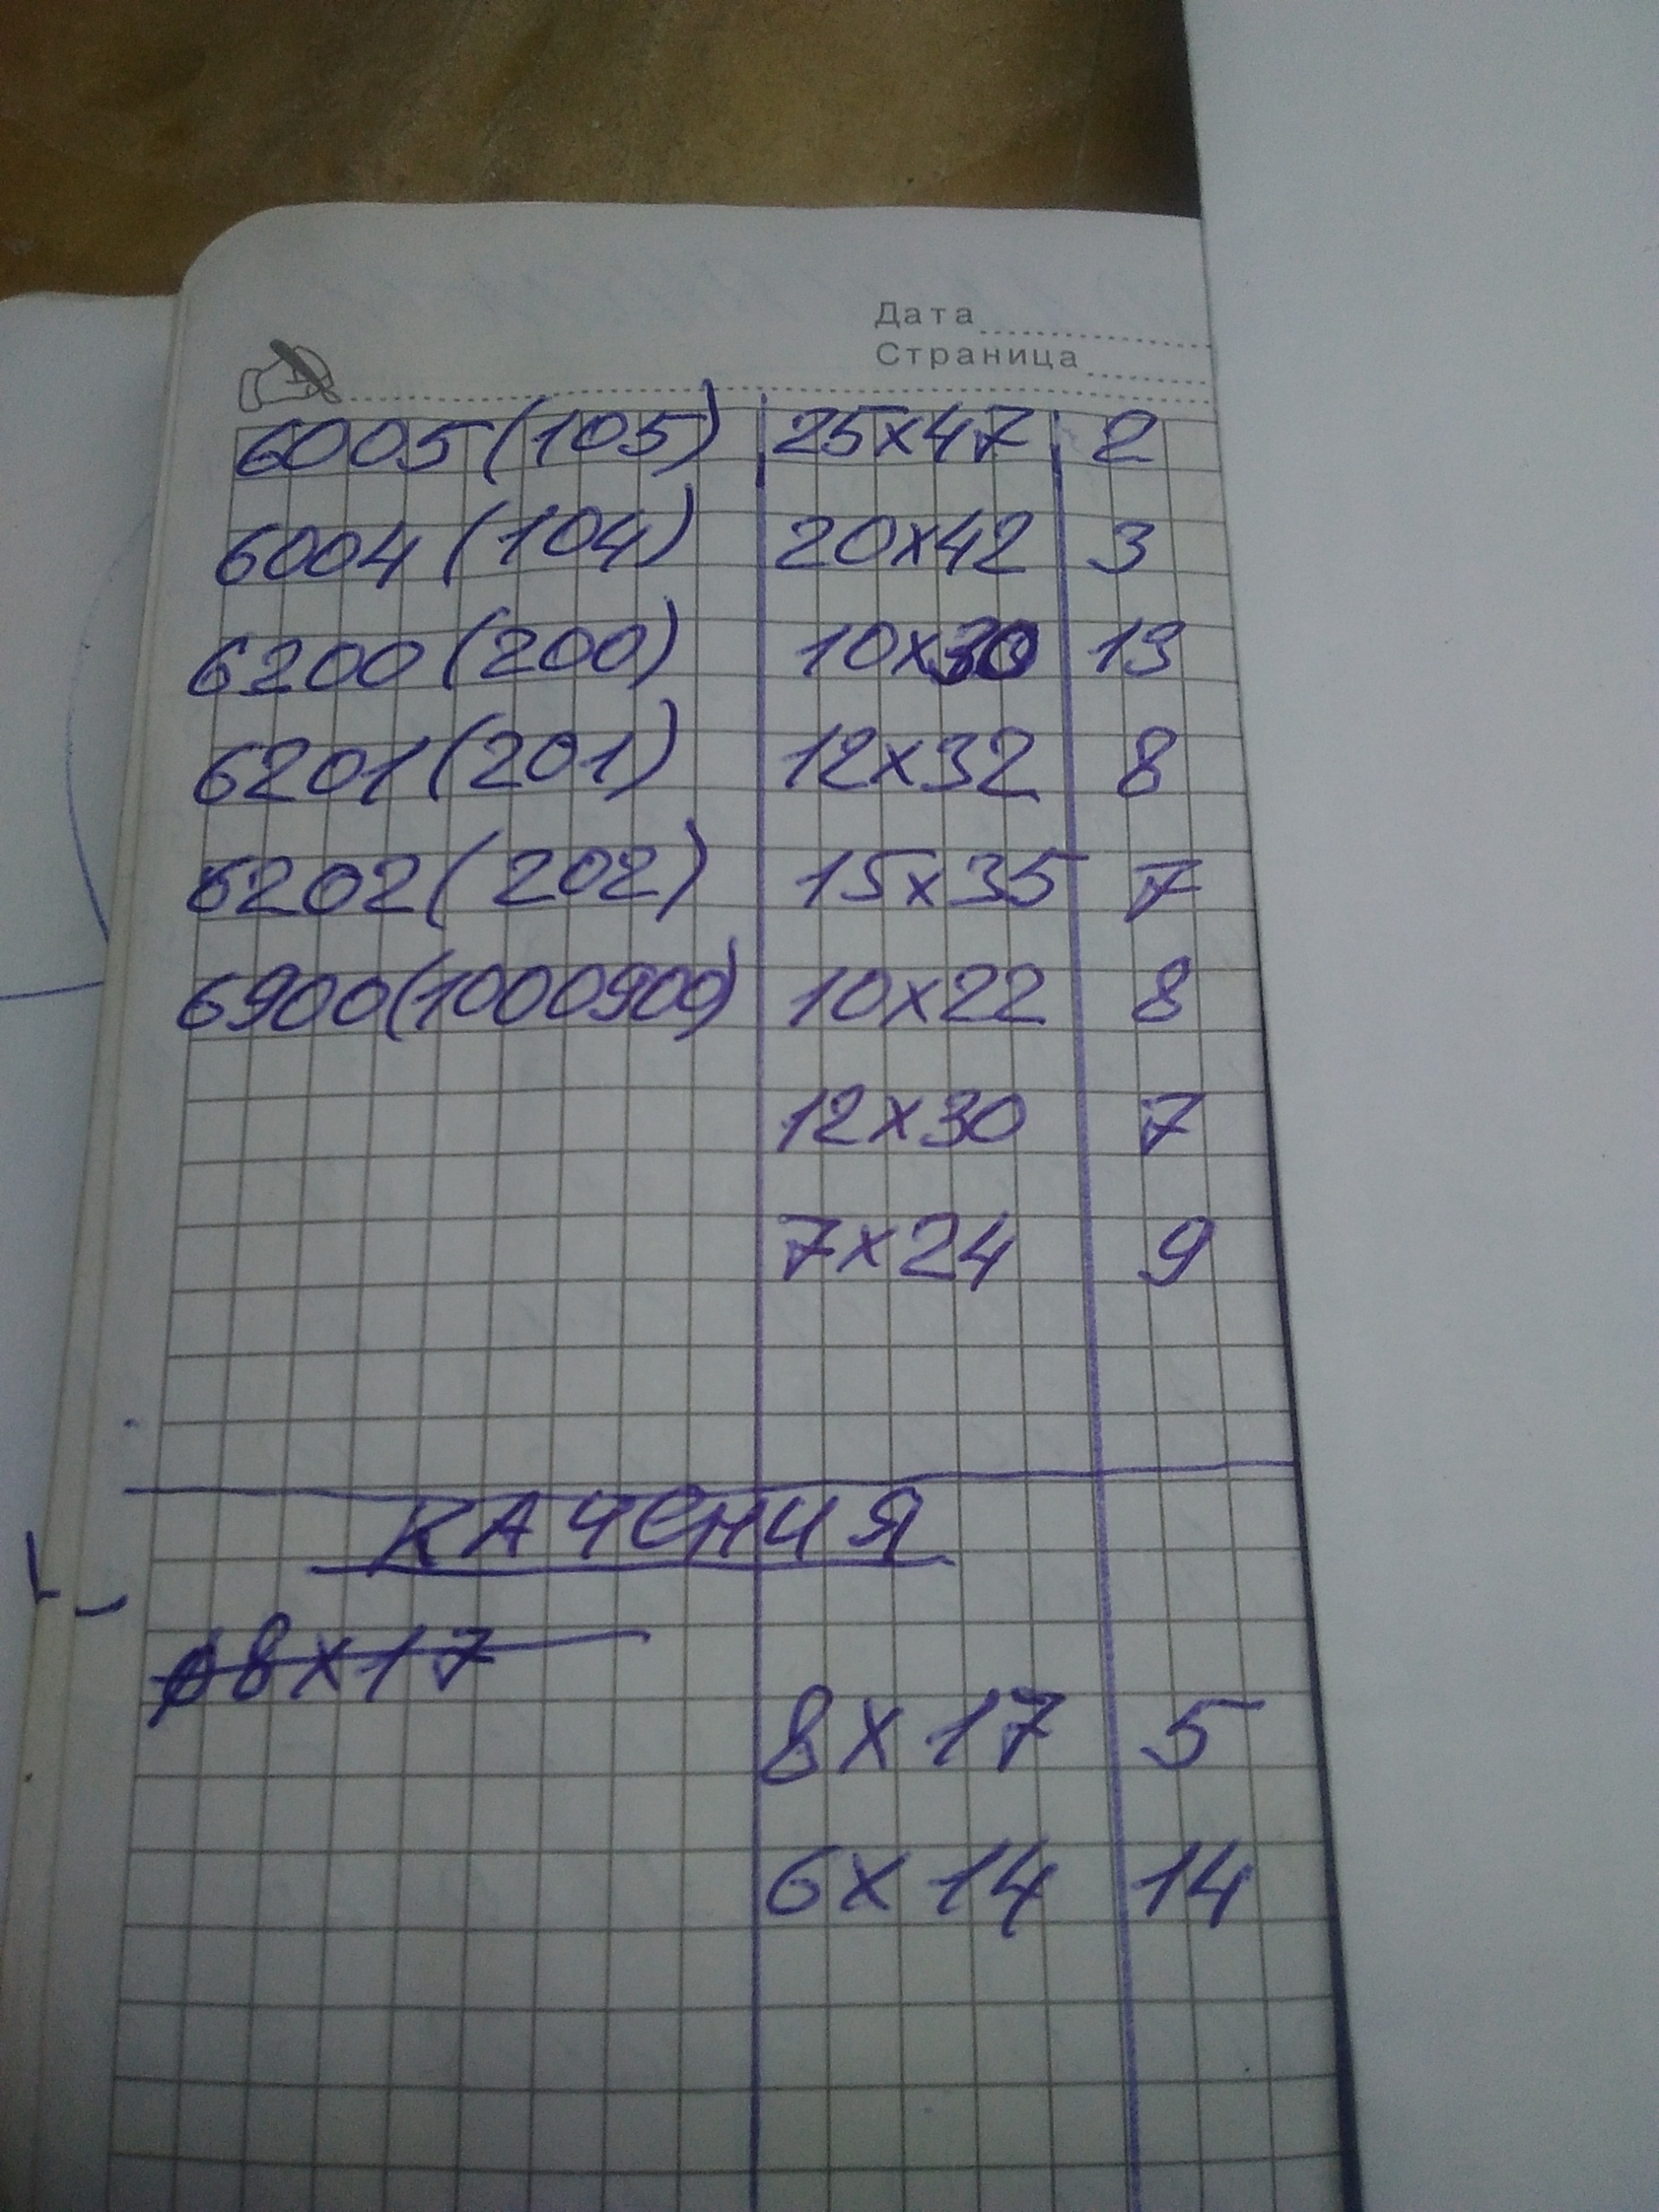 Дата
Страница
6005 (105) 25x47 2
6004 (104) 20x42 3
6200 (200) 10x30 13
6201 (201) 12x32 8
6202 (202) 15x35 7
6900 (1000900) 10x22 8
12x30 7
7x24 9
КАЧЕНИЯ
8x17
8x17 5
6x14 14